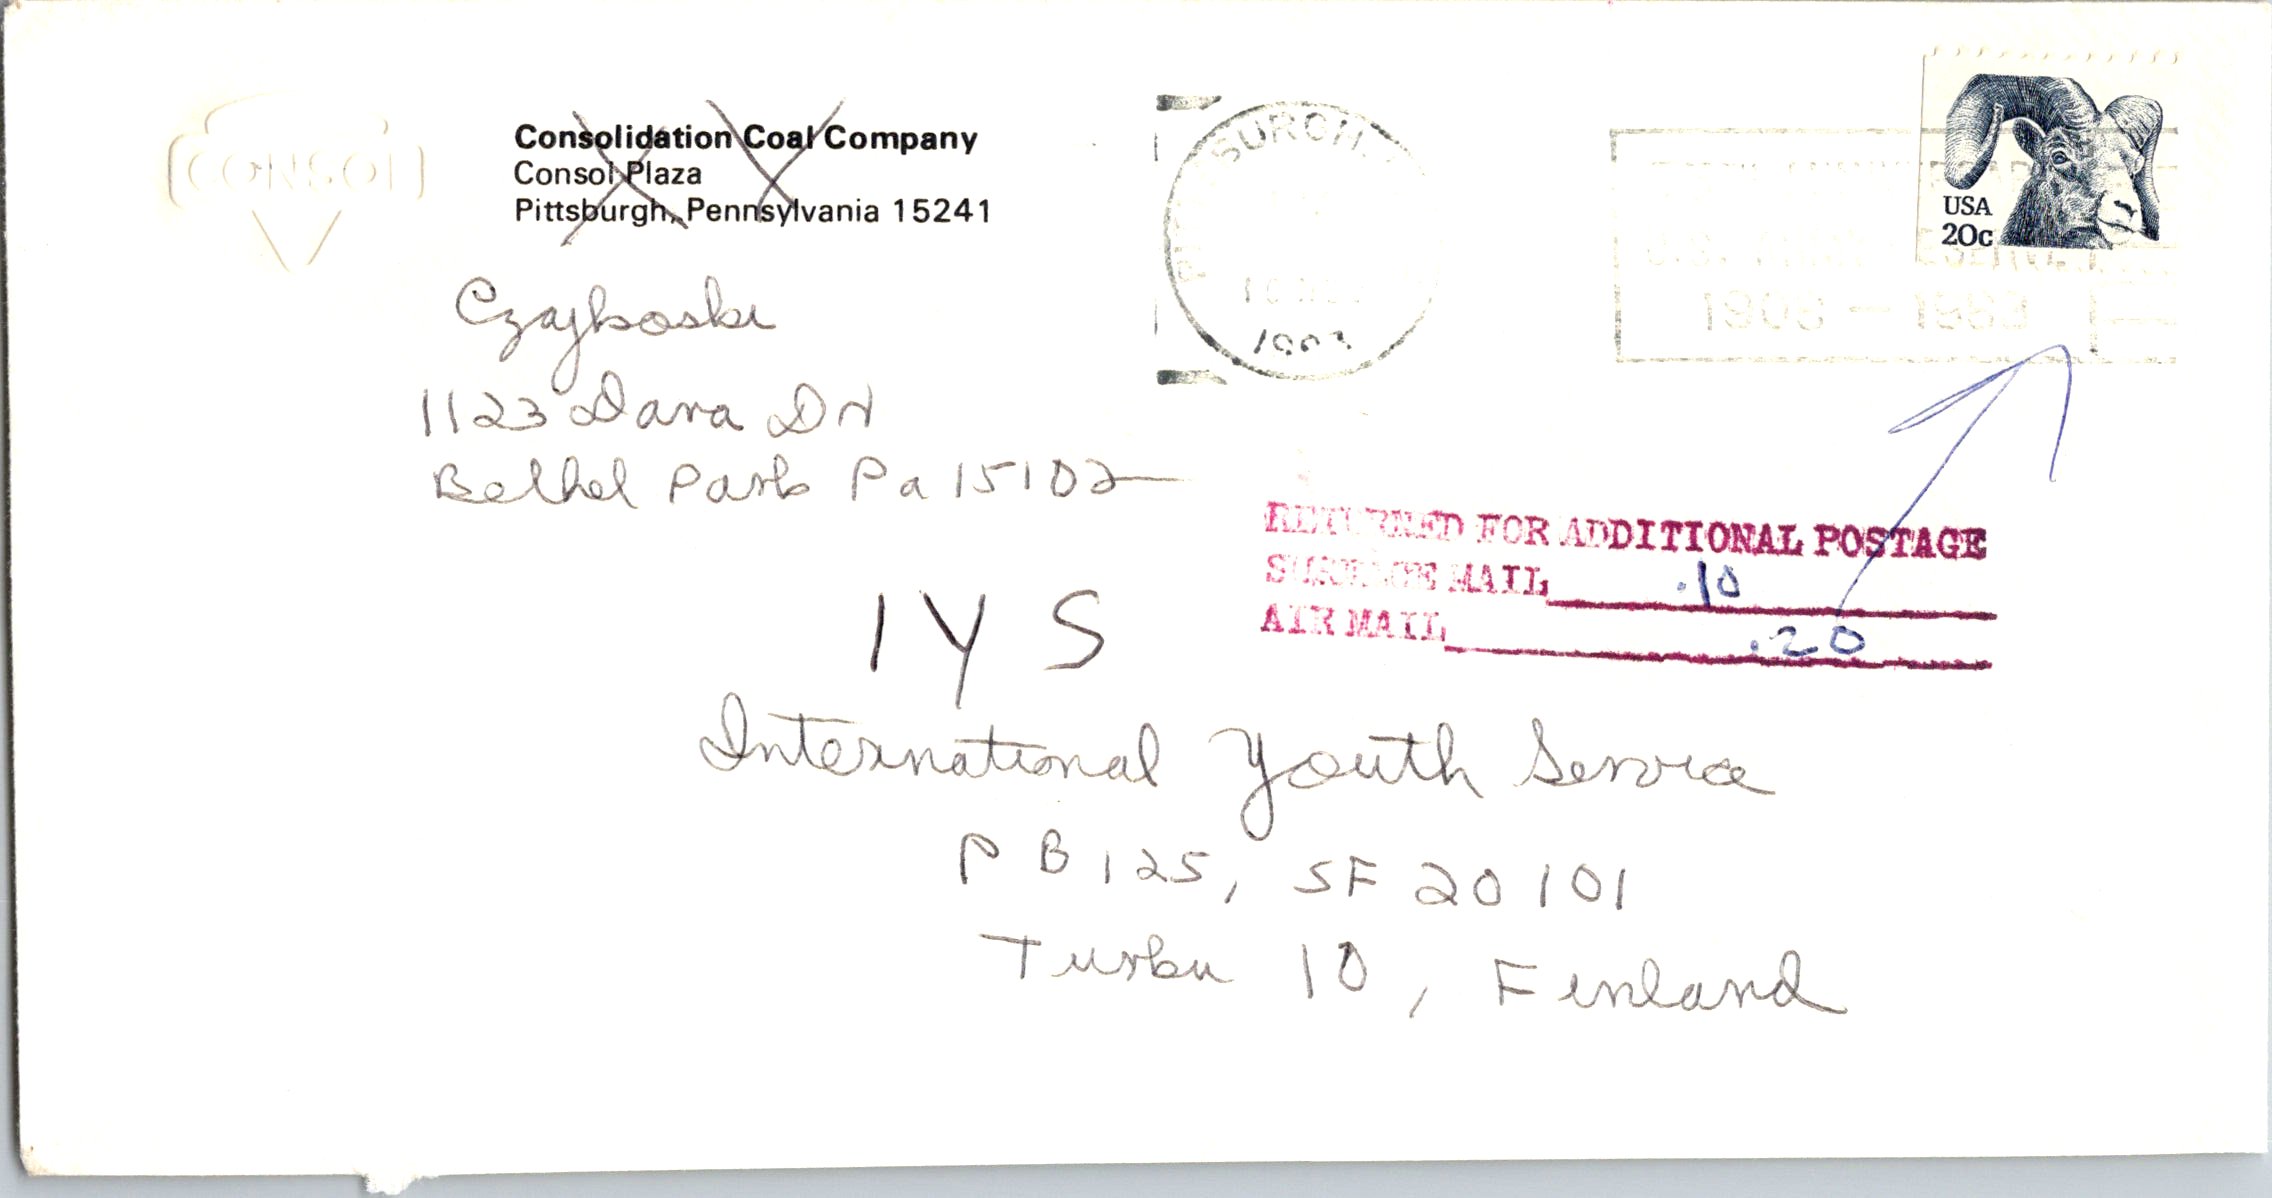 CONSOL
Consolidation Coal Company
Consol Plaza
Pittsburgh, Pennsylvania 15241
Czajkoski
1123 Dana Dr
Bethel Park Pa 15102
SURGH
1983
USA
20c
1903 - 1983
RETURNED FOR ADDITIONAL POSTAGE
SURFACE MAIL .10
AIR MAIL .20
IYS
International Youth Service
PB 125, SF 20101
Turku 10, Finland